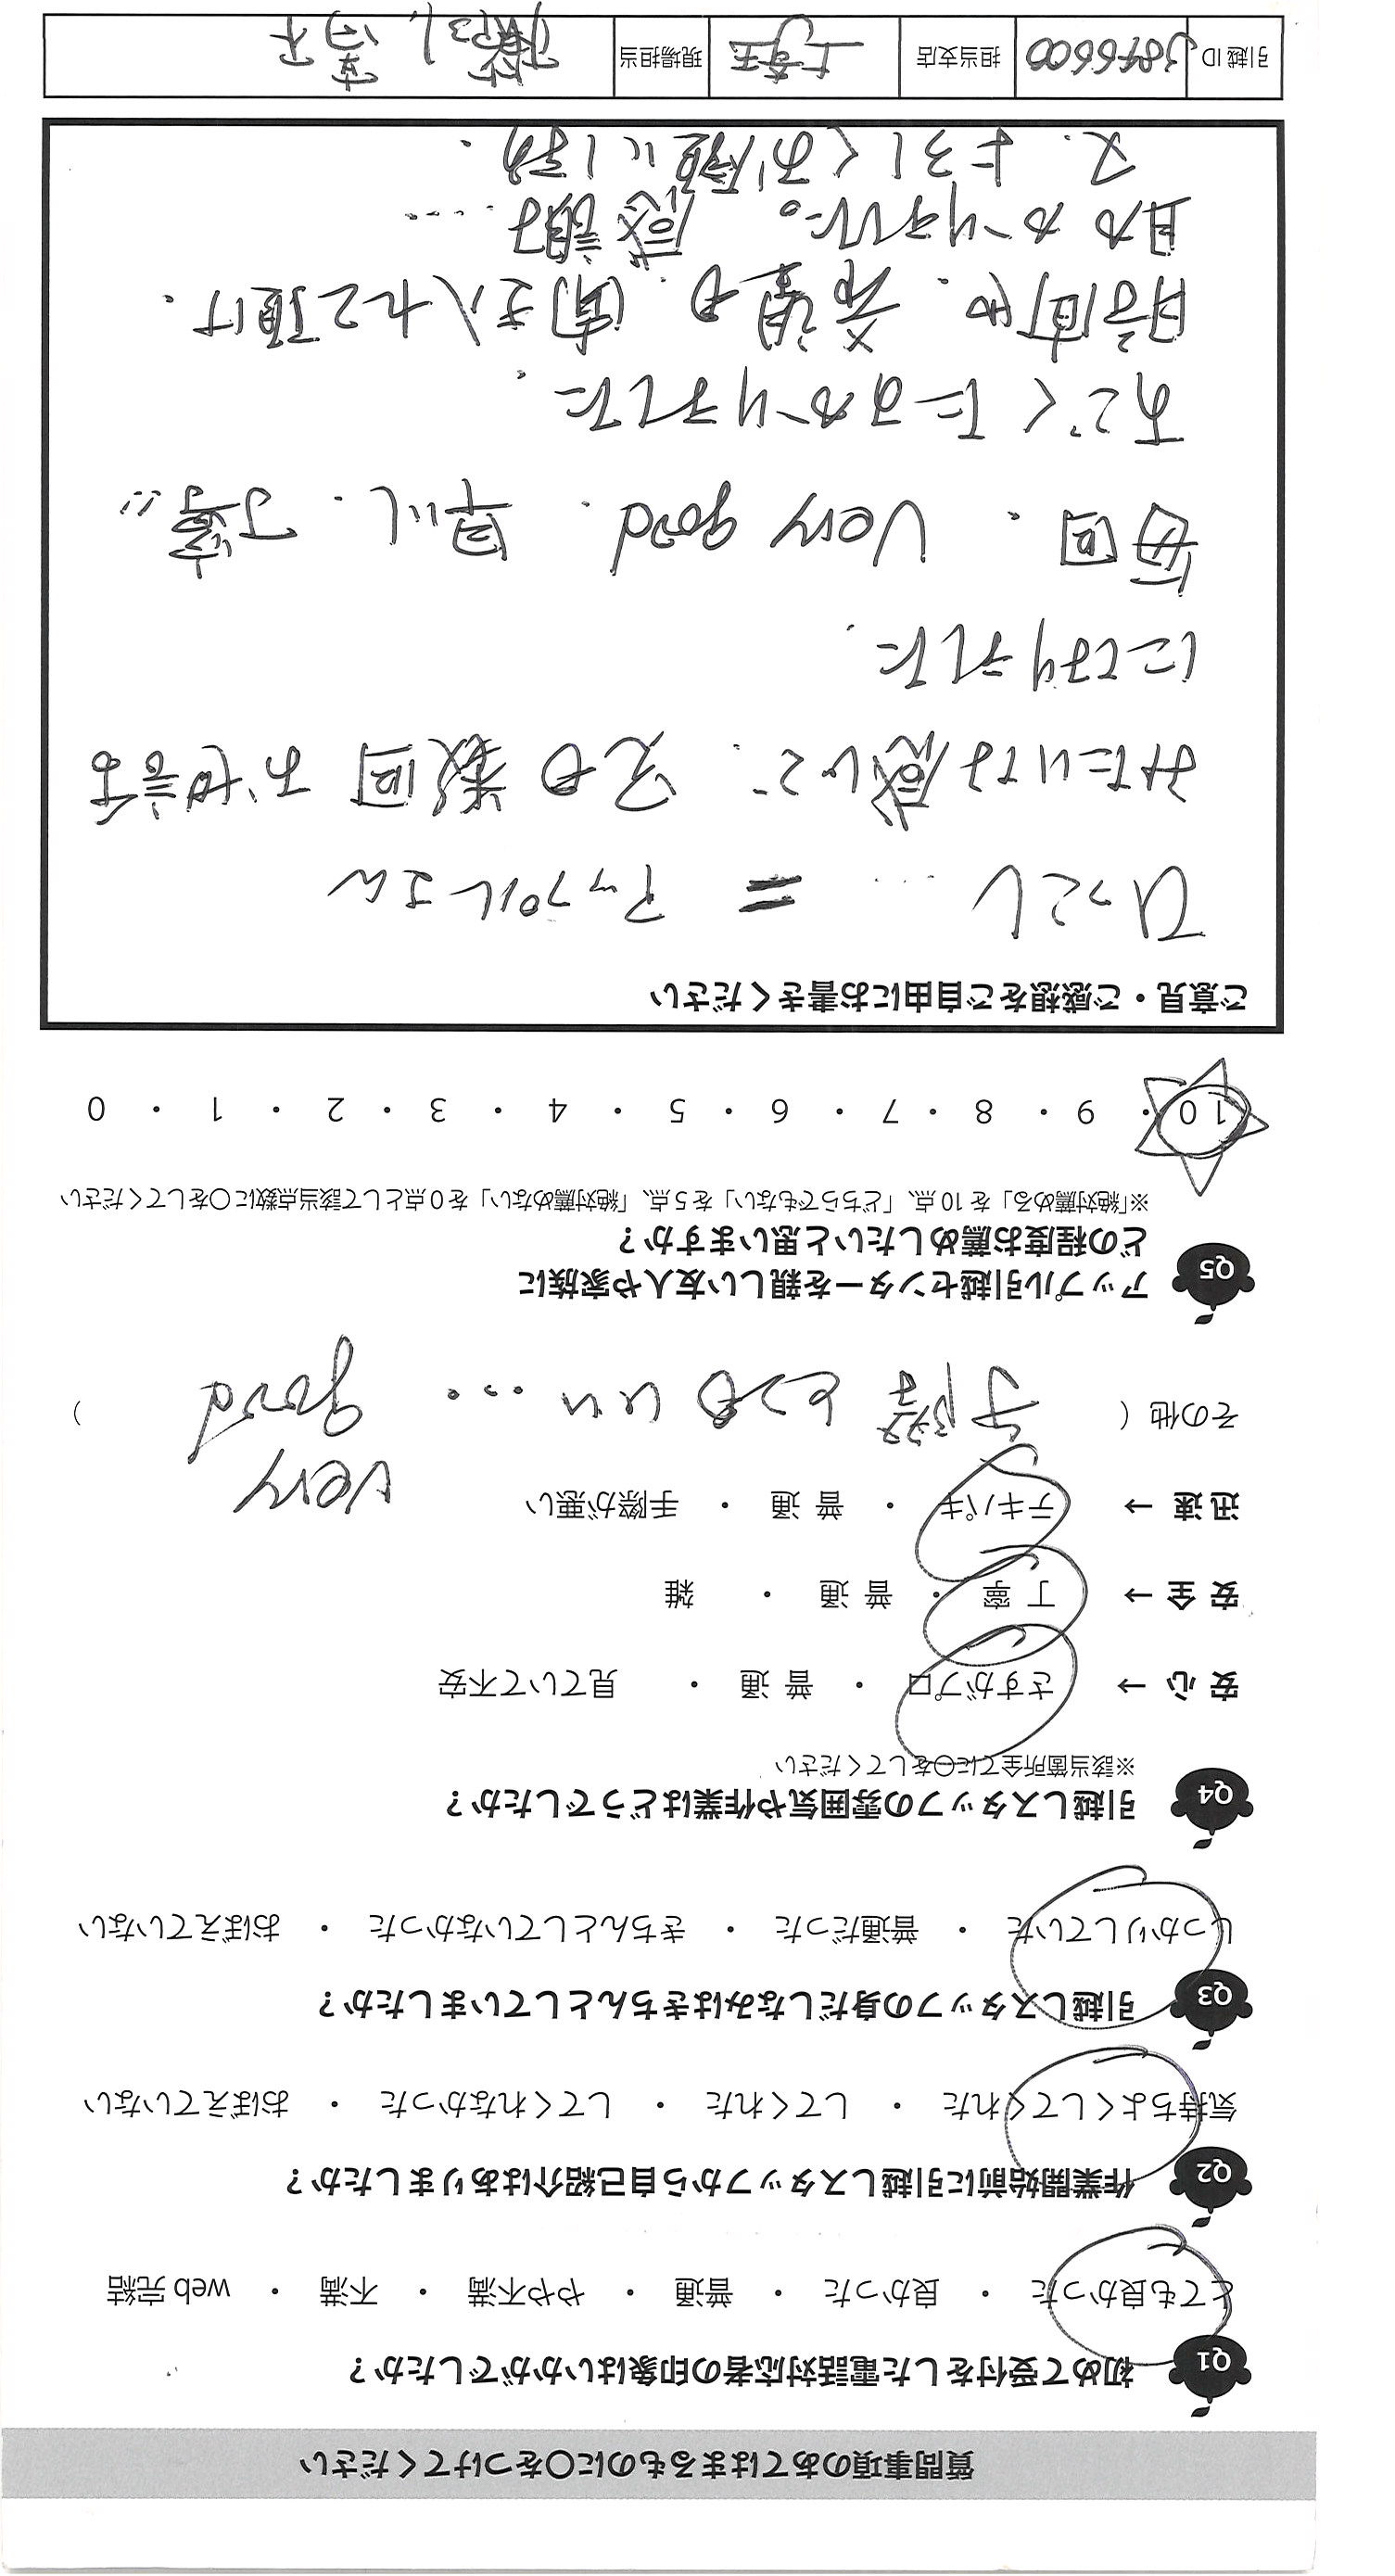 質問事項のあてはまるものに〇をつけてください
Q1 初めて受付をした電話対応者の印象はいかがでしたか？
とても良かった ・ 良かった ・ 普通 ・ やや不満 ・ 不満 ・ web 完結
Q2 作業開始前に引越しスタッフから自己紹介はありましたか？
気持ちよくしてくれた ・ してくれた ・ してくれなかった ・ おぼえていない
Q3 引越しスタッフの身だしなみはきちんとしていましたか？
しっかりしていた ・ 普通だった ・ きちんとしていなかった ・ おぼえていない
Q4 引越しスタッフの雰囲気や作業はどうでしたか？
※該当箇所全てに〇をしてください
安 心 → さすがプロ ・ 普 通 ・ 見ていて不安
安 全 → 丁 寧 ・ 普 通 ・ 雑
迅 速 → テキパキ ・ 普 通 ・ 手際が悪い
その他 ( 手際 とってもいい … very good )
Q5 アップル引越センターを親しい友人や家族に
どの程度お薦めしたいと思いますか？
※「絶対薦める」を 10 点、「どちらでもない」を 5 点、「絶対薦めない」を 0 点として該当点数に〇をしてください
10 ・ 9 ・ 8 ・ 7 ・ 6 ・ 5 ・ 4 ・ 3 ・ 2 ・ 1 ・ 0
ご意見・ご感想をご自由にお書きください
ひっこし … = アップルさん
みたいな感じで、もう数回 お世話
になりました.
毎回. Very good. 早いし. 丁寧!!
すごくたすかりました.
時間や. 希望も. 聞き入れて頂け.
助かりました。 感謝です…
又. よろしくお願いします.
引越 ID 3846600 担当支店 埼玉 現場担当